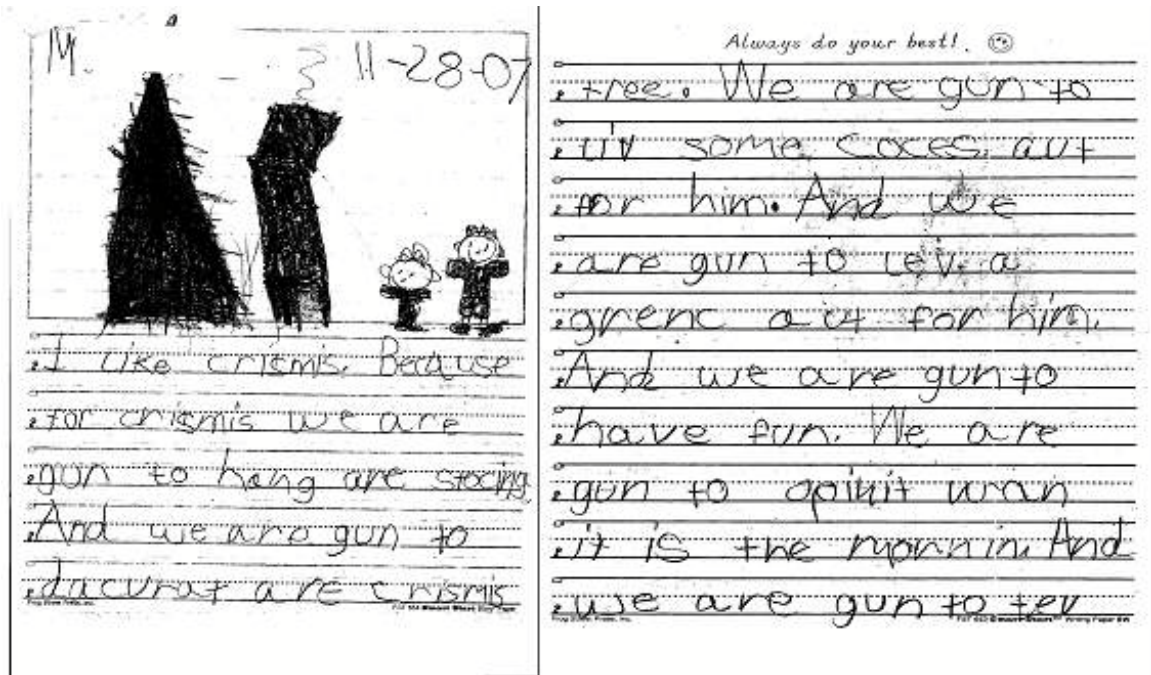 M.
11-28-07
I like crismis. Because
for crismis we are
gun to hang are stocing
And we are gun to
dacurat are crismis
Always do your best!
tree. We are gun to
liv some coces aut
for him. And we
are gun to lev a
grenc aut for him.
And we are gun to
have fun. We are
gun to opinit wan
it is the mornin. And
we are gun to tev